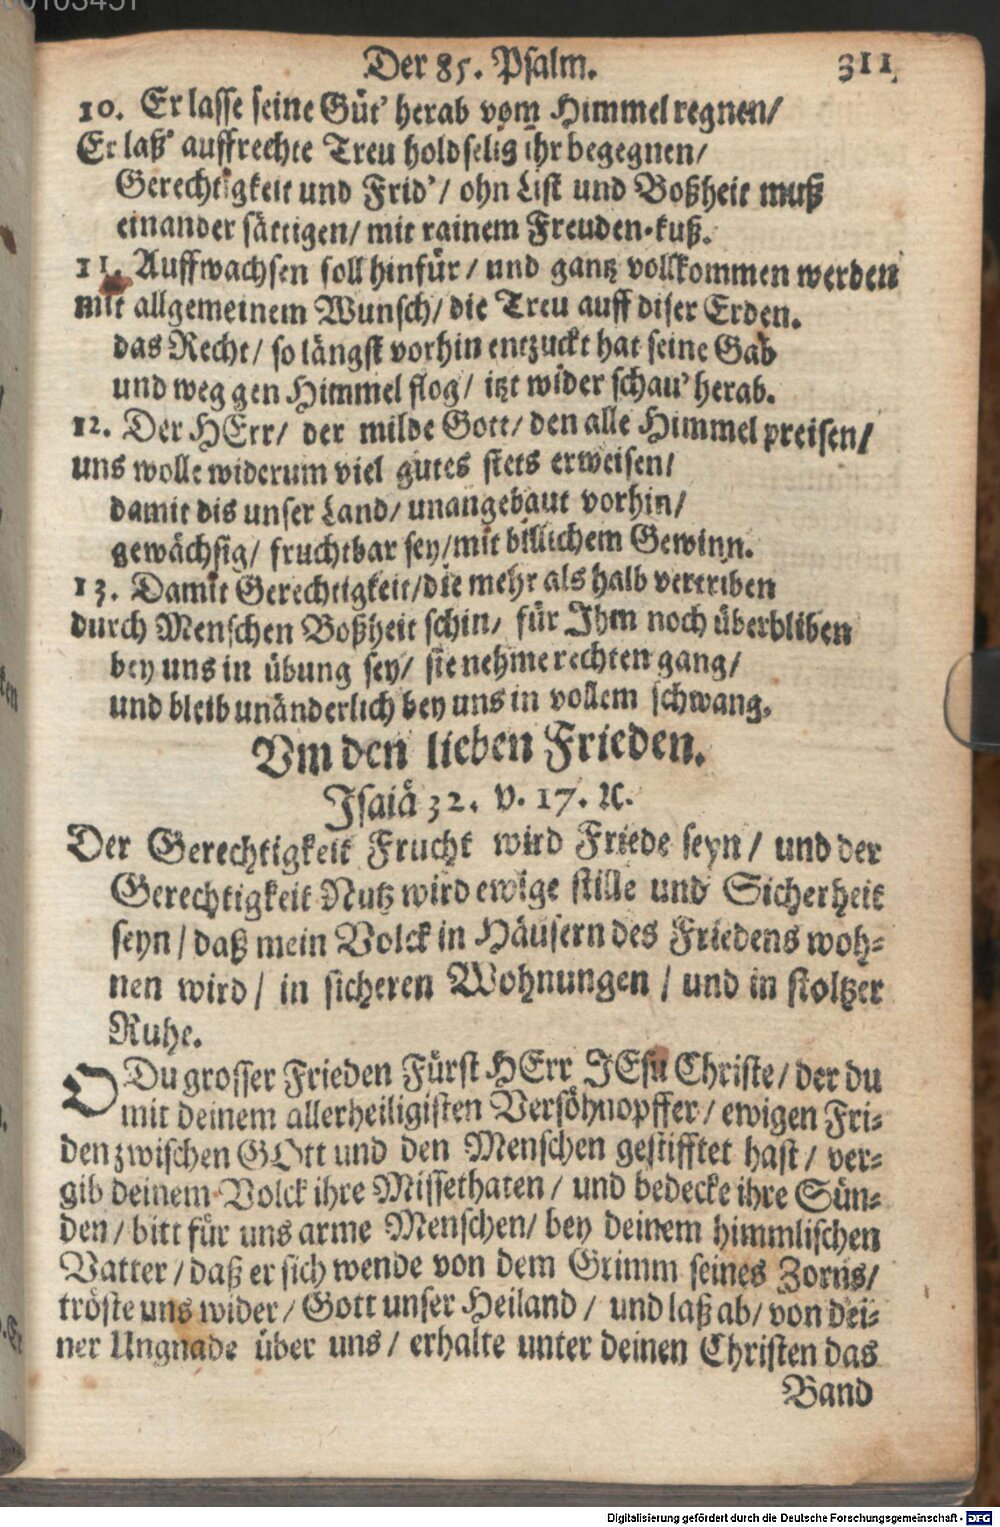 Der 85. Psalm. 311
10. Er lasse seine Güt' herab vom Himmel regnen/
Er laß' auffrechte Treu holdselig ihr begegnen/
Gerechtigkeit und Frid'/ ohn List und Boßheit muß
einander sättigen/ mit rainem Freuden-kuß.
11. Auffwachsen soll hinfür/ und gantz vollkommen werden
mit allgemeinem Wunsch/ die Treu auff diser Erden.
das Recht/ so längst vorhin entzuckt hat seine Gab
und weg gen Himmel flog/ itzt wider schau' herab.
12. Der HErr/ der milde Gott/ den alle Himmel preisen/
uns wolle widerum viel gutes stets erweisen/
damit dis unser Land/ unangebaut vorhin/
gewächsig/ fruchtbar sey/ mit billichem Gewinn.
13. Damit Gerechtigkeit/ die mehr als halb vertriben
durch Menschen Boßheit schin/ für Ihm noch überbliben
bey uns in übung sey/ sie nehme rechten gang/
und bleib unänderlich bey uns in vollem schwang.
Vm den lieben Frieden.
Isaiä 32. v. 17. A.
Der Gerechtigkeit Frucht wird Friede seyn/ und der
Gerechtigkeit Nutz wird ewige stille und Sicherheit
seyn/ daß mein Volck in Häusern des Friedens woh-
nen wird/ in sicheren Wohnungen/ und in stoltzer
Ruhe.
O Du grosser Frieden Fürst HErr JEsu Christe/ der du
mit deinem allerheiligisten Versöhnopffer/ ewigen Fri-
den zwischen GOtt und den Menschen gestifftet hast/ ver-
gib deinem Volck ihre Missethaten/ und bedecke ihre Sün-
den/ bitt für uns arme Menschen/ bey deinem himmlischen
Vatter/ daß er sich wende von dem Grimm seines Zorns/
tröste uns wider/ Gott unser Heiland/ und laß ab/ von dei-
ner Ungnade über uns/ erhalte unter deinen Christen das
Band
Digitalisierung gefördert durch die Deutsche Forschungsgemeinschaft - DFG